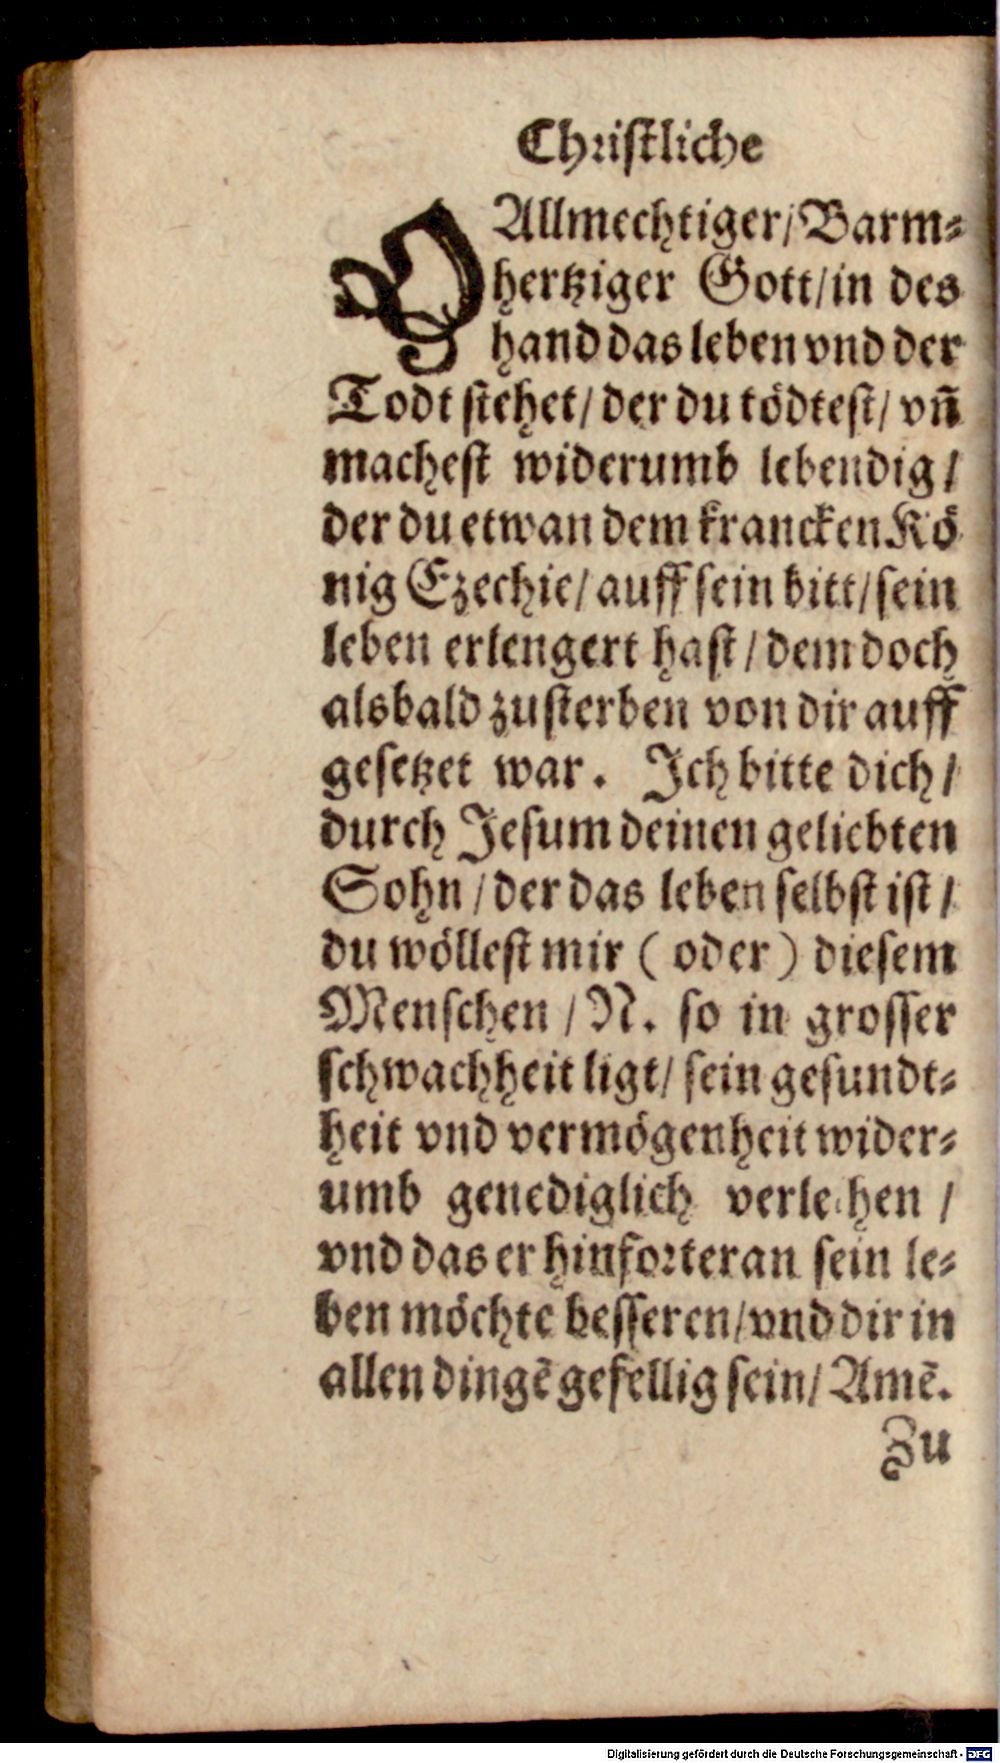 Christliche
O Allmechtiger/ Barm⸗
hertziger Gott/ in des
hand das leben vnd der
Todt stehet/ der du tödtest/ vn̄
machest widerumb lebendig/
der du etwan dem krancken Kö
nig Ezechie/ auff sein bitt/ sein
leben erlengert hast/ dem doch
alsbald zusterben von dir auff
gesetzet war. Ich bitte dich/
durch Jesum deinen geliebten
Sohn/ der das leben selbst ist/
du wöllest mir ( oder ) diesem
Menschen/ N. so in grosser
schwachheit ligt/ sein gesundt⸗
heit vnd vermögenheit wider⸗
umb genediglich verleihen/
vnd das er hinforteran sein le⸗
ben möchte besseren/ vnd dir in
allen dingē gefellig sein/ Amē.
Zu
Digitalisierung gefördert durch die Deutsche Forschungsgemeinschaft - DFG